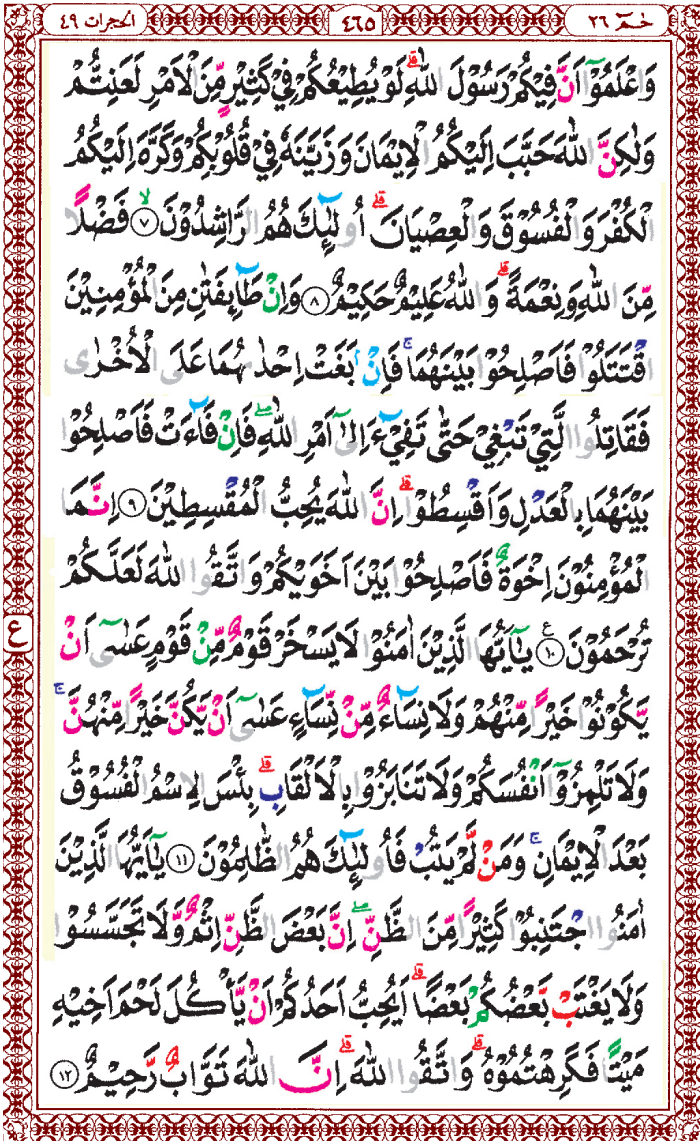 حٰمٓ ٢٦ ٤٦٥ الحجرات ٤٩
وَاعْلَمُوْٓا اَنَّ فِيْكُمْ رَسُوْلَ اللّٰهِ ؕ لَوْ يُطِيْعُكُمْ فِيْ كَثِيْرٍ مِّنَ الْاَمْرِ لَعَنِتُّمْ
وَلٰكِنَّ اللّٰهَ حَبَّبَ اِلَيْكُمُ الْاِيْمَانَ وَزَيَّنَهٗ فِيْ قُلُوْبِكُمْ وَكَرَّهَ اِلَيْكُمُ
الْكُفْرَ وَالْفُسُوْقَ وَالْعِصْيَانَ ؕ اُولٰٓئِكَ هُمُ الرَّاشِدُوْنَ ۙ ﴿٧﴾ فَضْلًا
مِّنَ اللّٰهِ وَنِعْمَةً ؕ وَاللّٰهُ عَلِيْمٌ حَكِيْمٌ ﴿٨﴾ وَاِنْ طَآئِفَتٰنِ مِنَ الْمُؤْمِنِيْنَ
اقْتَتَلُوْا فَاَصْلِحُوْا بَيْنَهُمَا ۚ فَاِنْۢ بَغَتْ اِحْدٰىهُمَا عَلَى الْاُخْرٰى
فَقَاتِلُوا الَّتِيْ تَبْغِيْ حَتّٰى تَفِيْٓءَ اِلٰٓى اَمْرِ اللّٰهِ ۖ فَاِنْ فَآءَتْ فَاَصْلِحُوْا
بَيْنَهُمَا بِالْعَدْلِ وَاَقْسِطُوْا ؕ اِنَّ اللّٰهَ يُحِبُّ الْمُقْسِطِيْنَ ﴿٩﴾ اِنَّمَا
الْمُؤْمِنُوْنَ اِخْوَةٌ فَاَصْلِحُوْا بَيْنَ اَخَوَيْكُمْ وَاتَّقُوا اللّٰهَ لَعَلَّكُمْ
تُرْحَمُوْنَ ﴿١٠﴾ ع يٰٓاَيُّهَا الَّذِيْنَ اٰمَنُوْا لَا يَسْخَرْ قَوْمٌ مِّنْ قَوْمٍ عَسٰٓى اَنْ
ع
يَّكُوْنُوْا خَيْرًا مِّنْهُمْ وَلَا نِسَآءٌ مِّنْ نِّسَآءٍ عَسٰٓى اَنْ يَّكُنَّ خَيْرًا مِّنْهُنَّ ۚ
وَلَا تَلْمِزُوْٓا اَنْفُسَكُمْ وَلَا تَنَابَزُوْا بِالْاَلْقَابِ ؕ بِئْسَ الِاسْمُ الْفُسُوْقُ
بَعْدَ الْاِيْمَانِ ۚ وَمَنْ لَّمْ يَتُبْ فَاُولٰٓئِكَ هُمُ الظّٰلِمُوْنَ ﴿١١﴾ يٰٓاَيُّهَا الَّذِيْنَ
اٰمَنُوا اجْتَنِبُوْا كَثِيْرًا مِّنَ الظَّنِّ ۖ اِنَّ بَعْضَ الظَّنِّ اِثْمٌ وَّلَا تَجَسَّسُوْا
وَلَا يَغْتَبْ بَّعْضُكُمْ بَعْضًا ؕ اَيُحِبُّ اَحَدُكُمْ اَنْ يَّاْكُلَ لَحْمَ اَخِيْهِ
مَيْتًا فَكَرِهْتُمُوْهُ ؕ وَاتَّقُوا اللّٰهَ ؕ اِنَّ اللّٰهَ تَوَّابٌ رَّحِيْمٌ ﴿١٢﴾